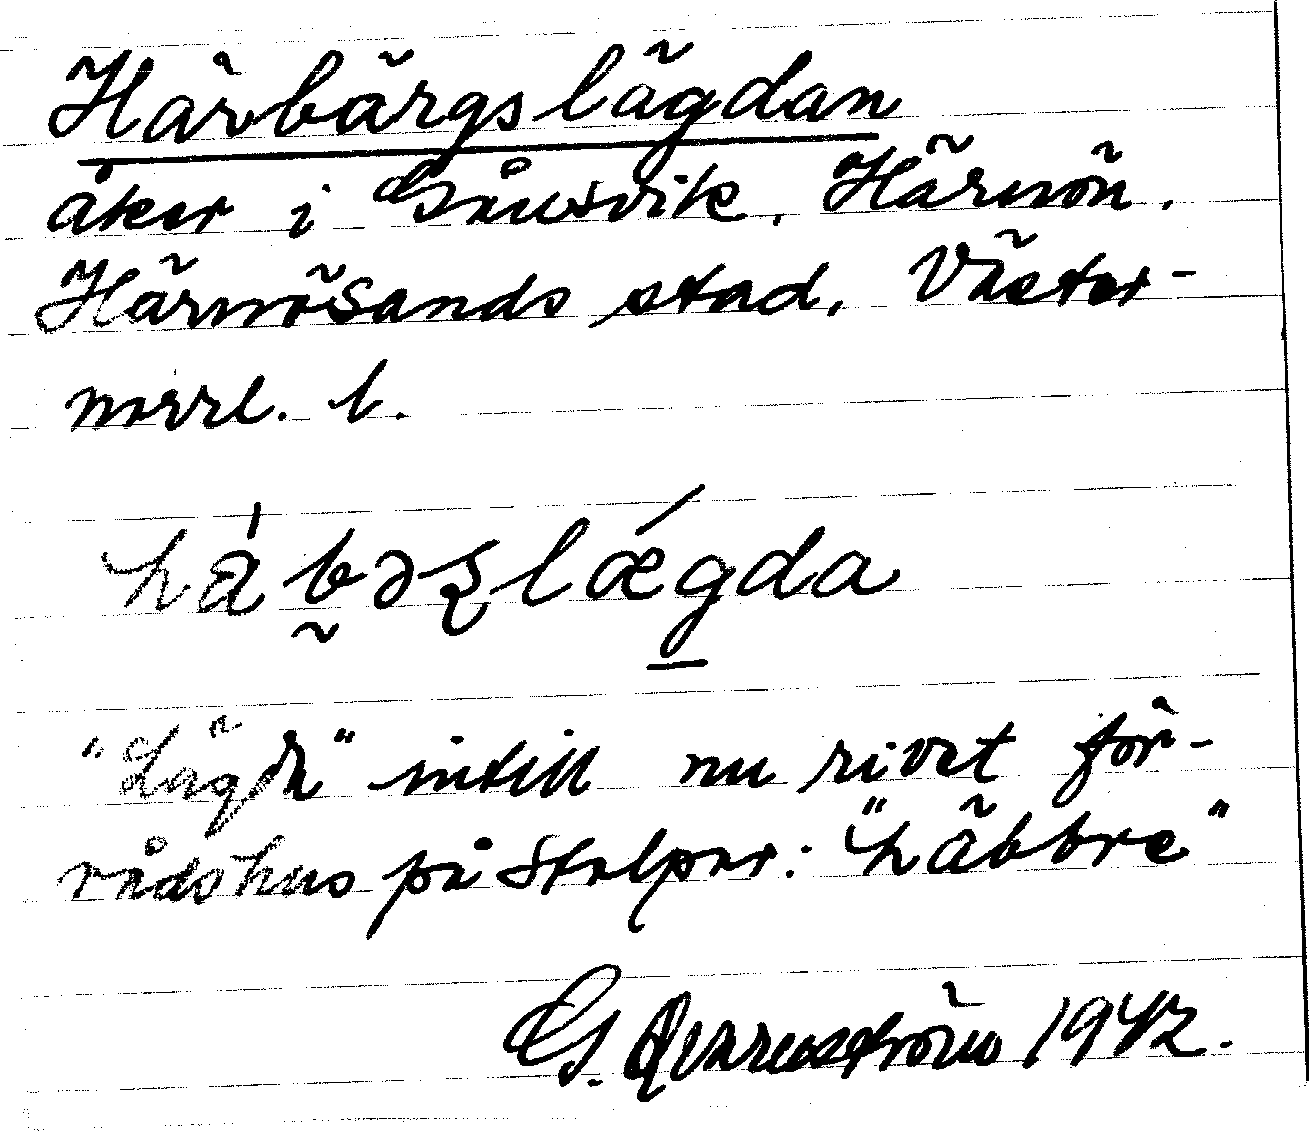 Härbärgslägdan
åker i Gånsvik, Härnön,
Härnösands stad, Väster-
norrl. l.
hábəslǽgda
"Lägd" intill nu rivet för-
rådshus på stolpar: "häbbre"
G. Qvarnström 1942.